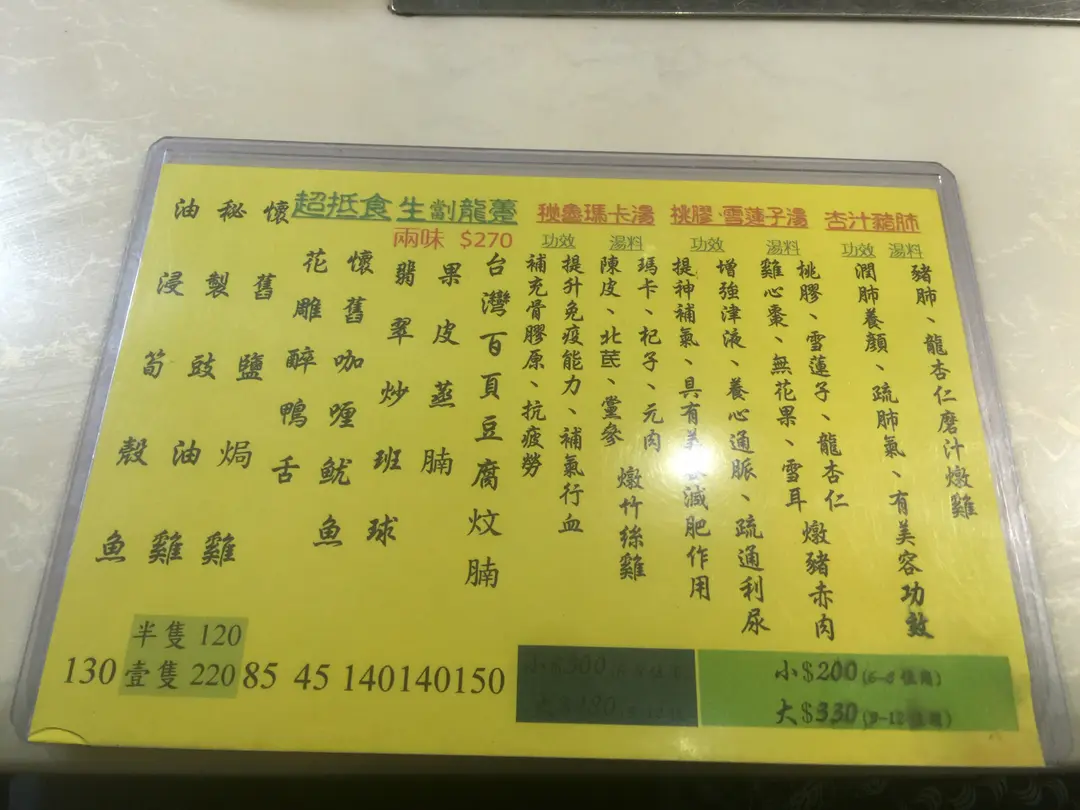 杏汁豬肺
湯料
豬肺、龍杏仁磨汁燉雞
功效
潤肺養顏、疏肺氣、有美容功效
桃膠·雪蓮子湯
湯料
桃膠、雪蓮子、龍杏仁 燉豬赤肉
雞心棗、無花果、雪耳
功效
增強津液、養心通脈、疏通利尿
提神補氣、具有美減肥作用
小$200(6-8位用)
大$330(9-12位用)
秘魯瑪卡湯
湯料
瑪卡、杞子、元肉 燉竹絲雞
陳皮、北芪、黨參
功效
提升免疫能力、補氣行血
補充骨膠原、抗疲勞
超抵食 生劏龍躉
兩味 $270
台灣百頁豆腐炆腩
果皮蒸腩
翡翠炒班球
懷舊咖喱魷魚
花雕醉鴨舌
懷舊鹽焗雞
秘製豉油雞
油浸筍殼魚
半隻 120
130 壹隻 220 85 45 140 140 150